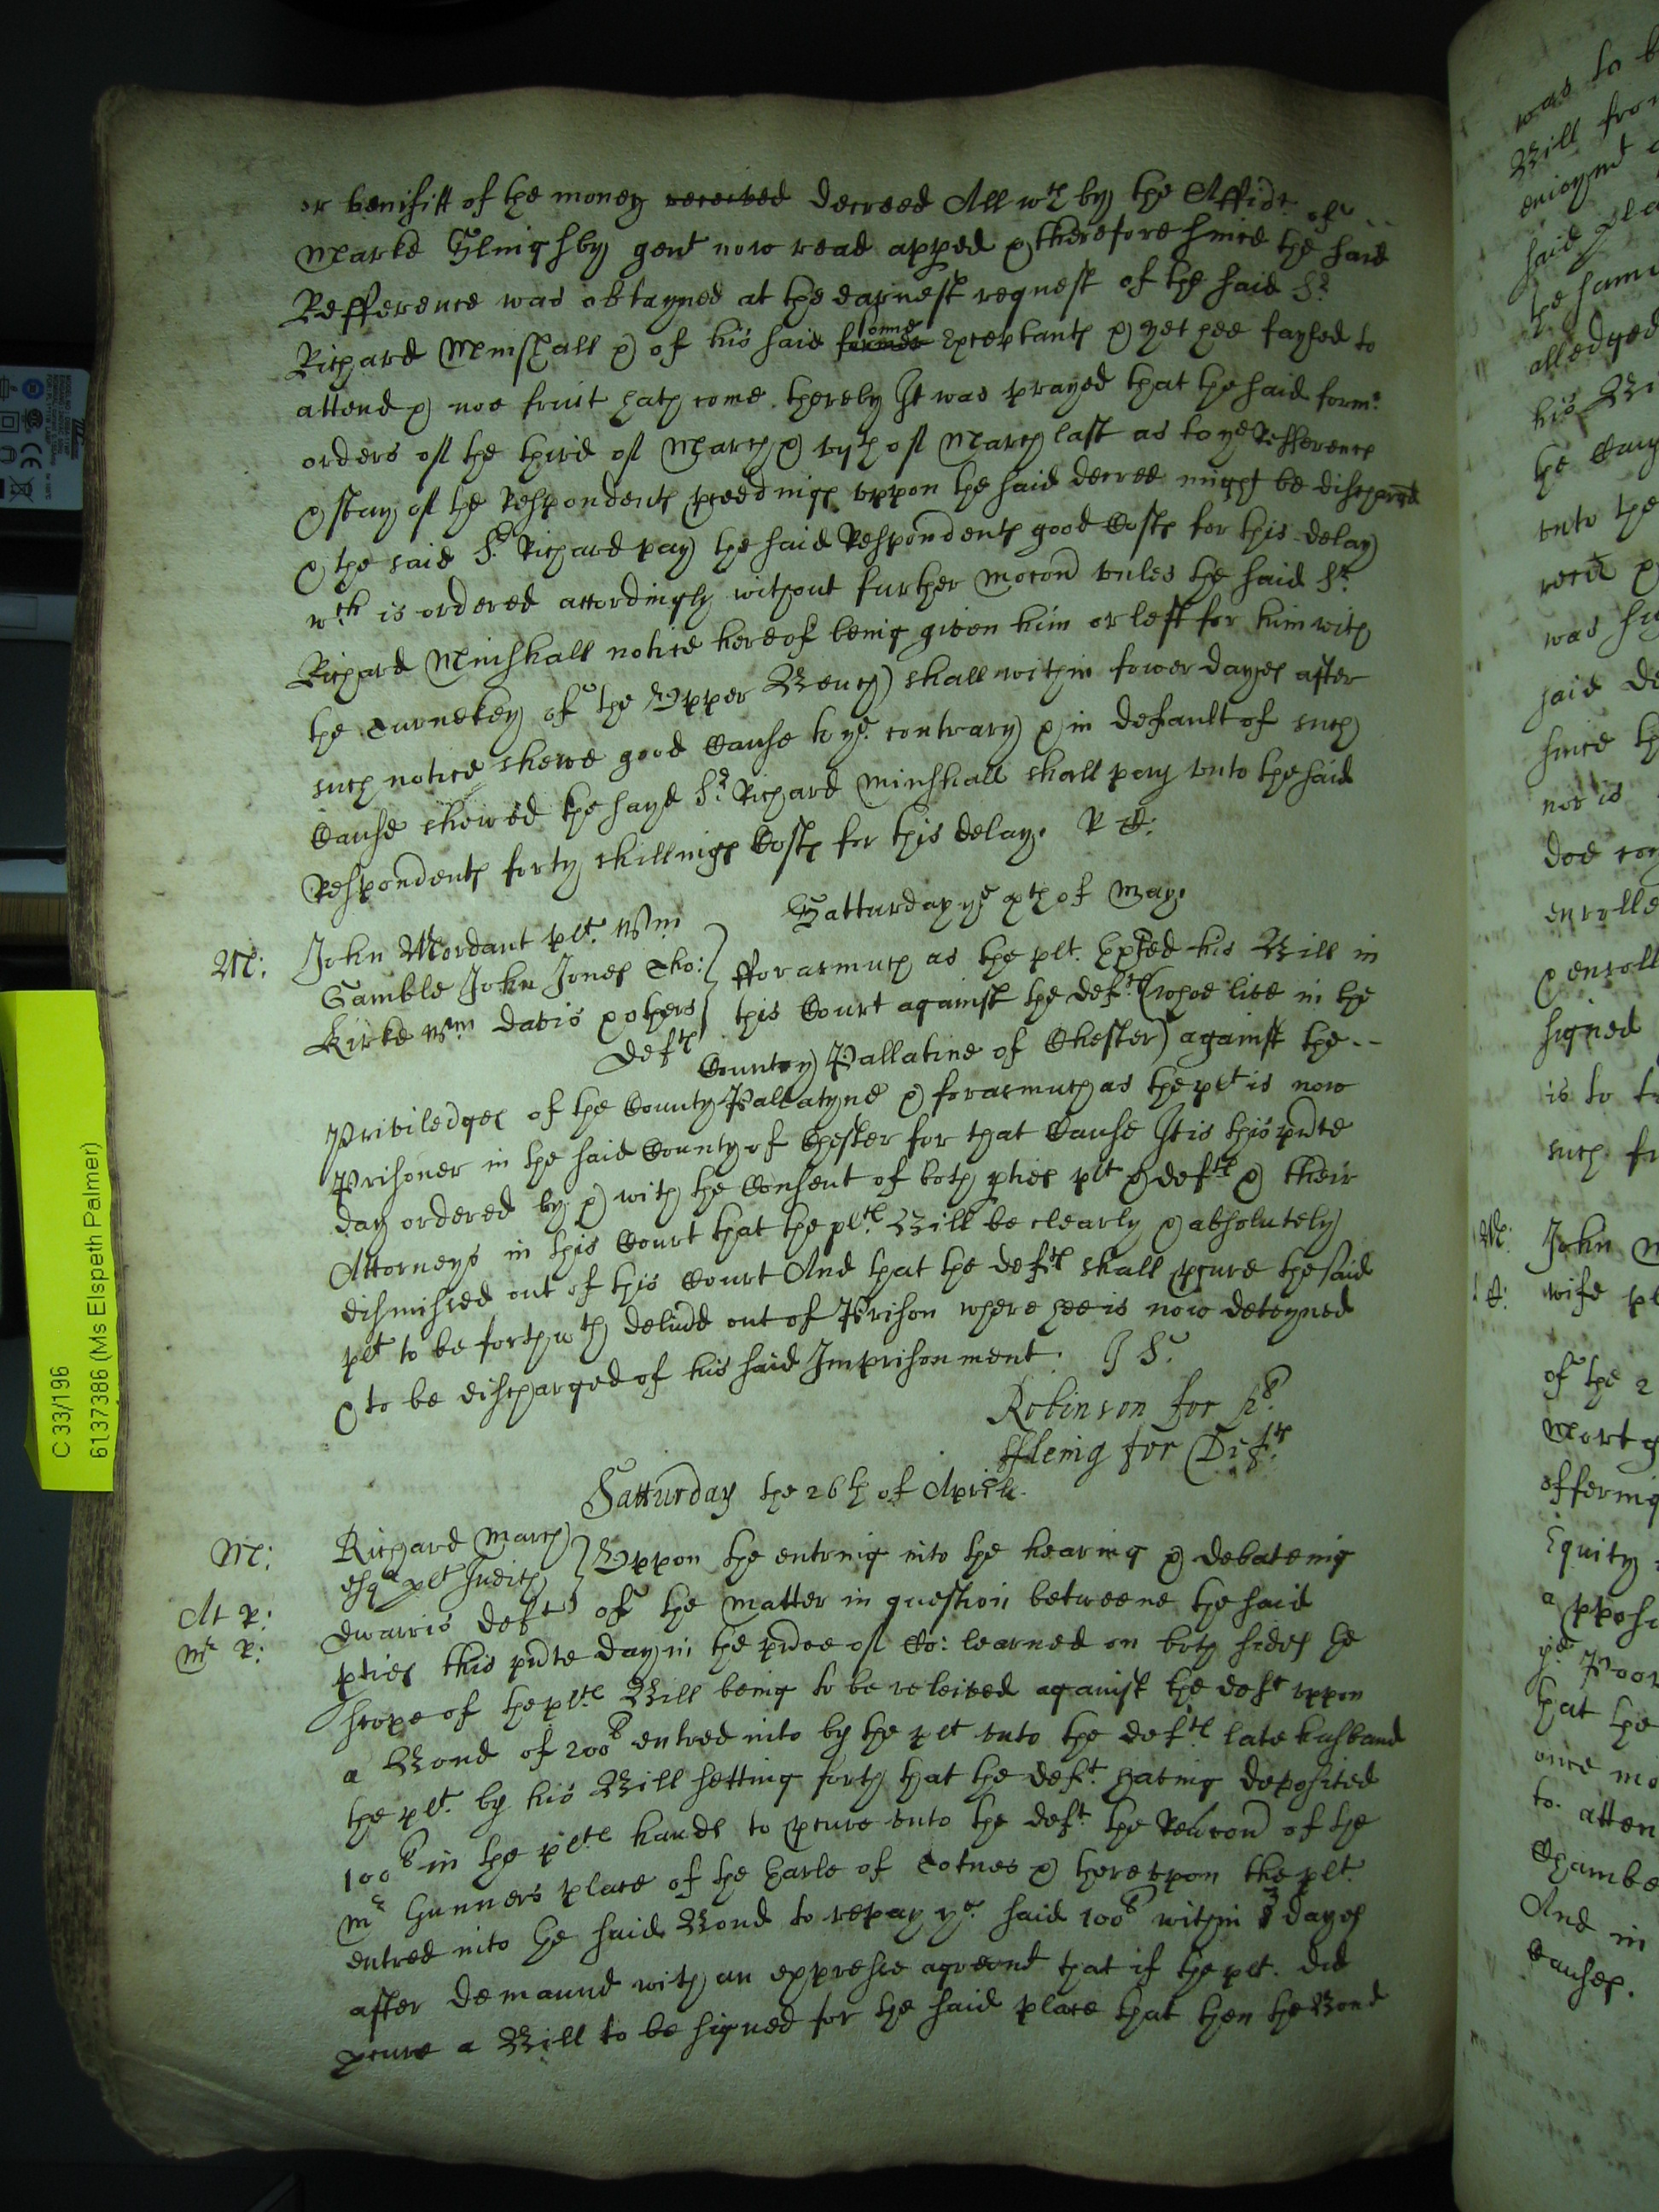 or benifitt of the money received decreed All wch by the Affidt of
Marke Slingsby gent now read apped & therefore since the said
Refference was obtayned at the earnest request of the said Sr
Richard Minshall & of his said former some Exceptants & yet hee fayled to
attend & noe fruit hath come thereby It was prayed that the said formr
orders of the third of March & vijth of March last as to ye Refference
& stay of the Respondents pceedings vppon the said decree might be dischargd
& the said Sr Richard pay the said Respondents good Costs for this delay
wch is ordered accordingly without further mocon vnles the said Sr
Richard Minshall notice hereof being given him or left for him with
the Turnekey of the Vpper Bench) shall within fower dayes after
such notice shewe good Cause to ye contrary & in default of such
Cause shewed the sayd Sr Richard Minshall shall pay vnto the said
Respondents forty shillings Costs for this delay. R C:
Satturday ye xth of May.
M:
John Mordant plt Wm
Gamble John Jones Tho:
Kirke Wm Davis & others
Defts
fforasmuch as the plt Exhted his Bill in
this Court against the defts (whoe live in the
County Pallatine of Chester) against the
Priviledges of the County Pallatyne & forasmuch as the plt is now
Prisoner in the said County of Chester for that Cause It is this pnte
day ordered by & with the Consent of both pties plt & defts & their
Attorneys in this Court that the plts Bill be clearly & absolutely
dismissed out of this Court And that the defts shall pcure the said
plt to be forthwth delivd out of Prison where hee is now deteyned
& to be discharged of his said Imprisonment. J S.
Robinson for pl
ffleing for Defts
Satturday the 26th of Aprill.
M:
At p:
Mr p:
Richard March
esqr plt Judith
Dwarris deft
Vppon the entring into the hearing & debateing
of the matter in question betweene the said
pties this pnte day in the pnce of Co: learned on both sides the
scope of the plts Bill being to be releived against the deft vppon
a Bond of 200l entred into by the plt vnto the defts late husband
the plt by his Bill setting forth that the deft having deposited
100l in the plts hands to pcure vnto the deft the Revercon of the
Mr Gunners place of the Earle of Totnes & therevpon the plt
entred into the said Bond to repay ye said 100l within 3 dayes
after demaund with an expresse agreemt that if the plt did
pcure a Bill to be signed for the said place that then the Bond
C 33/196
6137386 (Ms Elspeth Palmer)